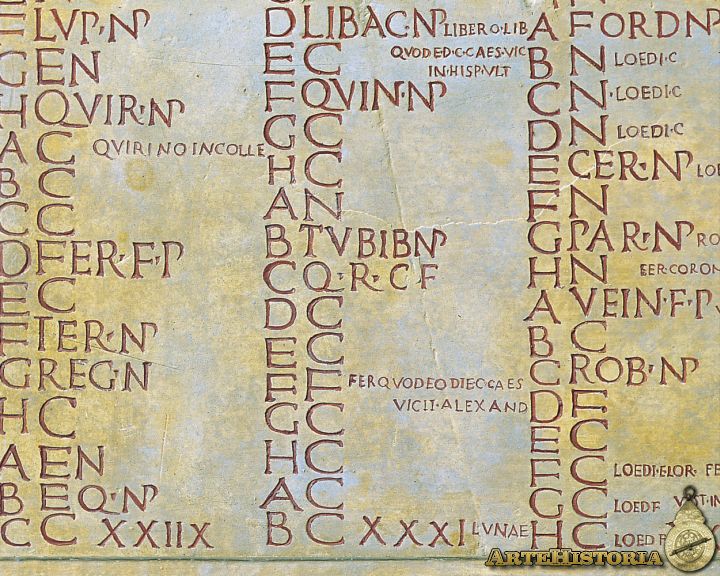 E LVP·NP
G EN
H QVIR·NP
A C QVIRINO IN COLLE
B C
C C
D FER·F·P
E C
F TER·NP
G REG·NP
H C
A EN
B EQ·NP
C C XXIIX
D LIB AG·NP LIBERO LIB
E C QVOD E·D·C·CAES·VIC
IN·HISP·VLT
F QVIN·NP
G C
H C
A N
B TVBI B NP
C Q·R·C F
D C
E C
F F FER QVOD EO DIE C·CAES
VICIT·ALEXAND
G C
H C
A C
B C XXXI LVNAE
A FORD NP
B N LOEDI·C
C N· LOEDI·C
D N LOEDI C
E CER·NP LOE
F N
G PAR·NP RO
H N FER·CORON
A VEIN·F·P
B C
C ROB·NP
D F
E C
F C LOEDI·FLOR· FE
G C LOED F
H C LOED F
ARTEHISTORIA